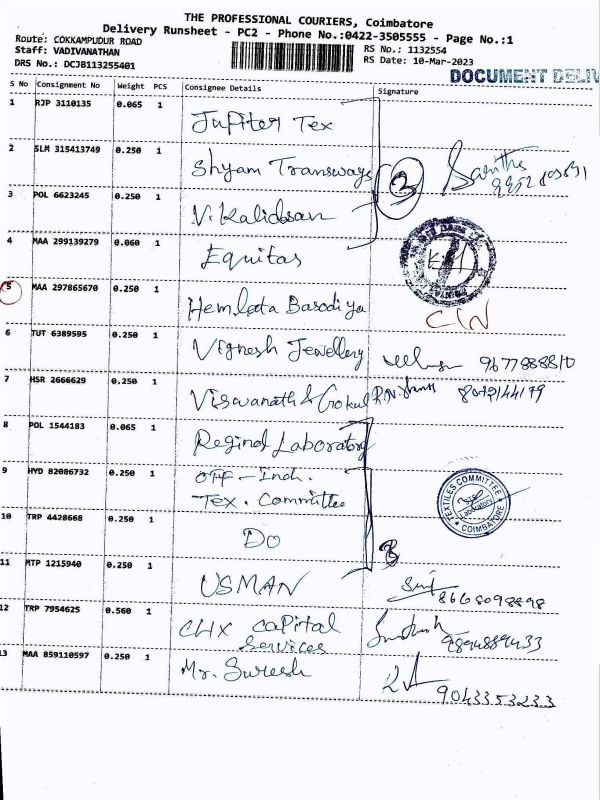 THE PROFESSIONAL COURIERS, Coimbatore
Delivery Runsheet - PC2 - Phone No.:0422-3505555 - Page No.:1
Route: COKKAMPUDUR ROAD
RS No.: 1132554
Staff: VADIVANATHAN
RS Date: 10-Mar-2023
DRS No.: DCJB113255401
DOCUMENT DELIV
S No Consignment No Weight PCS Consignee Details Signature
1 RJP 3110135 0.065 1 Jupiter Tex
2 SLM 315413749 0.250 1 Shyam Transways 3
3 POL 6623245 0.250 1 V. Kalidasan
4 MAA 299139279 0.060 1 Equitas
5 MAA 297865670 0.250 1 Hemlata Basodiya C/N
6 TUT 6389595 0.250 1 Vignesh Jewellery 9677888810
7 HSR 2666629 0.250 1 Viswanath & Gokul R.N.
8 POL 1544183 0.065 1 Reginol Laboratory
9 HYD 82086732 0.250 1 OFF - Ind.
Tex. Committee
TEXTILES COMMITTEE
COIMBATORE
10 TRP 4428668 0.250 1 DO 3
11 MTP 1215940 0.250 1 USMAN 8668098898
12 TRP 7954625 0.560 1 CLIX Capital
Services 9894889433
13 MAA 859110597 0.250 1 Mr. Suresh 9043353233